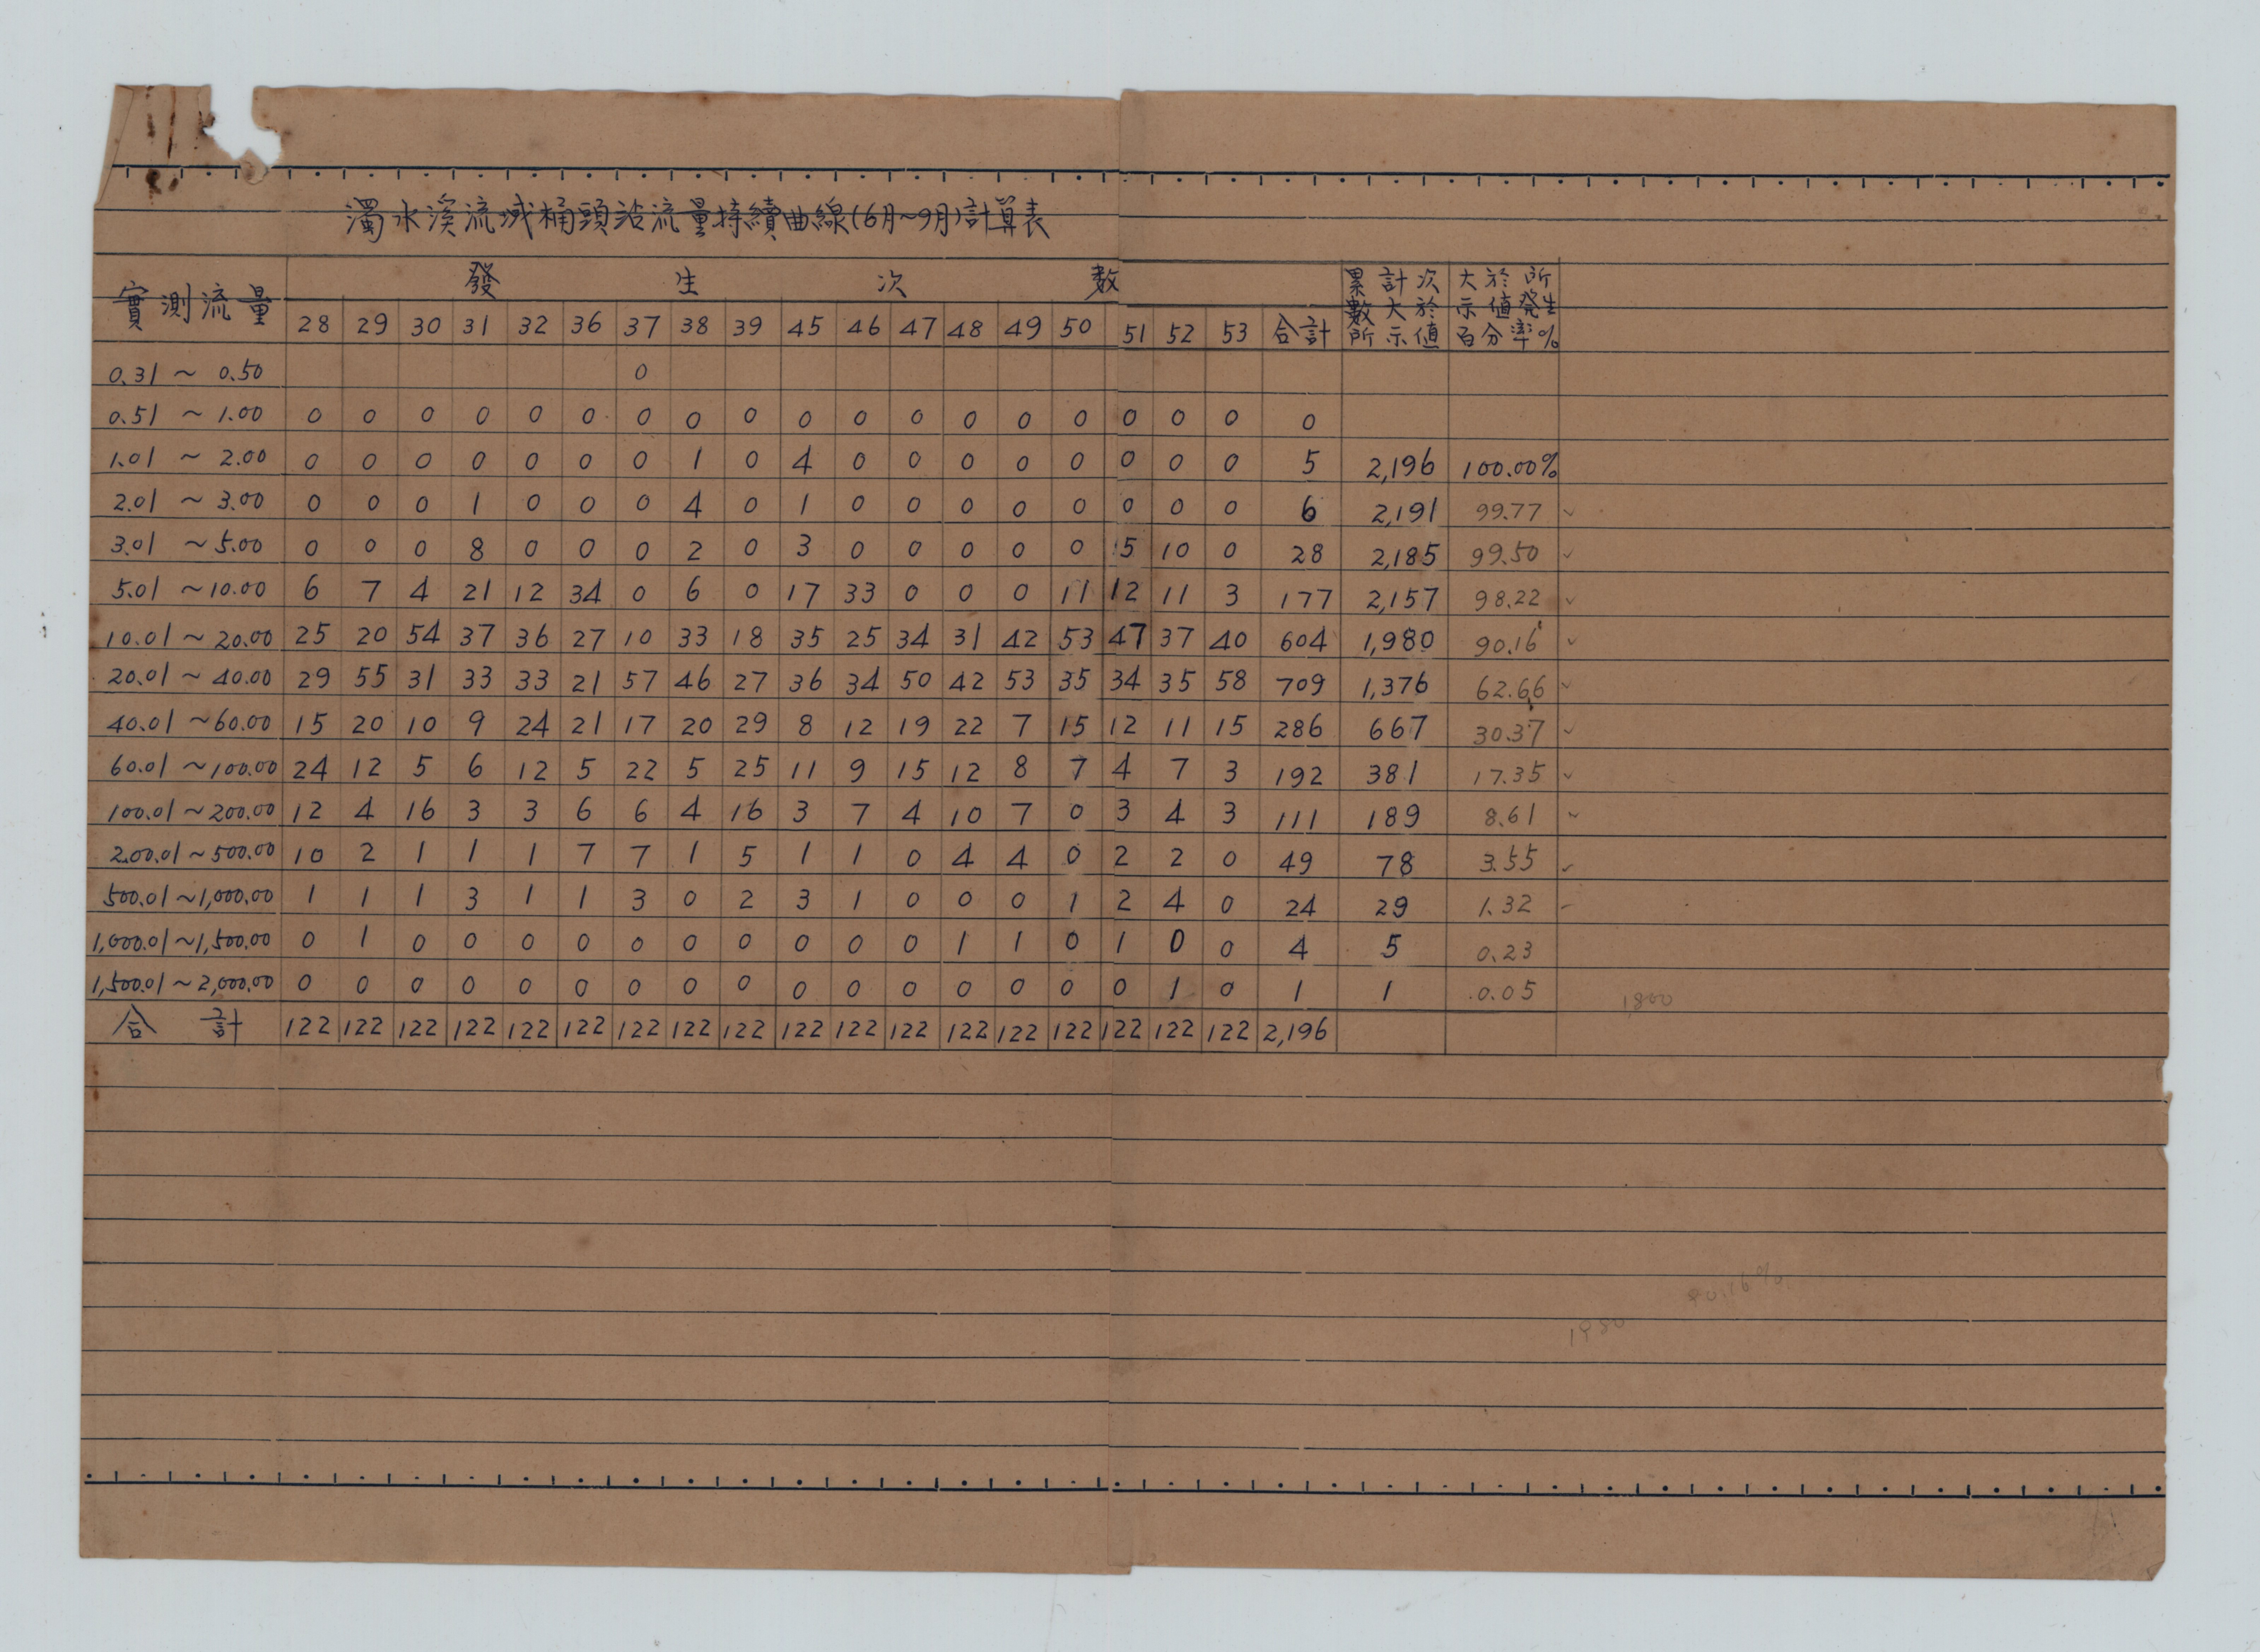 濁水溪流域桶頭站流量持續曲線(6月~9月)計算表
實測流量 發生次数 累計次數大於所示值 大於所示值発生百分率%
28 29 30 31 32 36 37 38 39 45 46 47 48 49 50 51 52 53 合計
0.31 ~ 0.50 0
0.51 ~ 1.00 0 0 0 0 0 0 0 0 0 0 0 0 0 0 0 0 0 0 0
1.01 ~ 2.00 0 0 0 0 0 0 0 1 0 4 0 0 0 0 0 0 0 0 5 2,196 100.00%
2.01 ~ 3.00 0 0 0 1 0 0 0 4 0 1 0 0 0 0 0 0 0 0 6 2,191 99.77
3.01 ~ 5.00 0 0 0 8 0 0 0 2 0 3 0 0 0 0 0 5 10 0 28 2,185 99.50
5.01 ~ 10.00 6 7 4 21 12 34 0 6 0 17 33 0 0 0 11 12 11 3 177 2,157 98.22
10.01 ~ 20.00 25 20 54 37 36 27 10 33 18 35 25 34 31 42 53 47 37 40 604 1,980 90.16
20.01 ~ 40.00 29 55 31 33 33 21 57 46 27 36 34 50 42 53 35 34 35 58 709 1,376 62.66
40.01 ~ 60.00 15 20 10 9 24 21 17 20 29 8 12 19 22 7 15 12 11 15 286 667 30.37
60.01 ~ 100.00 24 12 5 6 12 5 22 5 25 11 9 15 12 8 7 4 7 3 192 381 17.35
100.01 ~ 200.00 12 4 16 3 3 6 6 4 16 3 7 4 10 7 0 3 4 3 111 189 8.61
200.01 ~ 500.00 10 2 1 1 1 7 7 1 5 1 1 0 4 4 0 2 2 0 49 78 3.55
500.01 ~ 1,000.00 1 1 1 3 1 1 3 0 2 3 1 0 0 0 1 2 4 0 24 29 1.32
1,000.01 ~ 1,500.00 0 1 0 0 0 0 0 0 0 0 0 0 1 1 0 1 0 0 4 5 0.23
1,500.01 ~ 2,000.00 0 0 0 0 0 0 0 0 0 0 0 0 0 0 0 0 1 0 1 1 0.05 1,800
合計 122 122 122 122 122 122 122 122 122 122 122 122 122 122 122 122 122 122 2,196
90.16%
1980